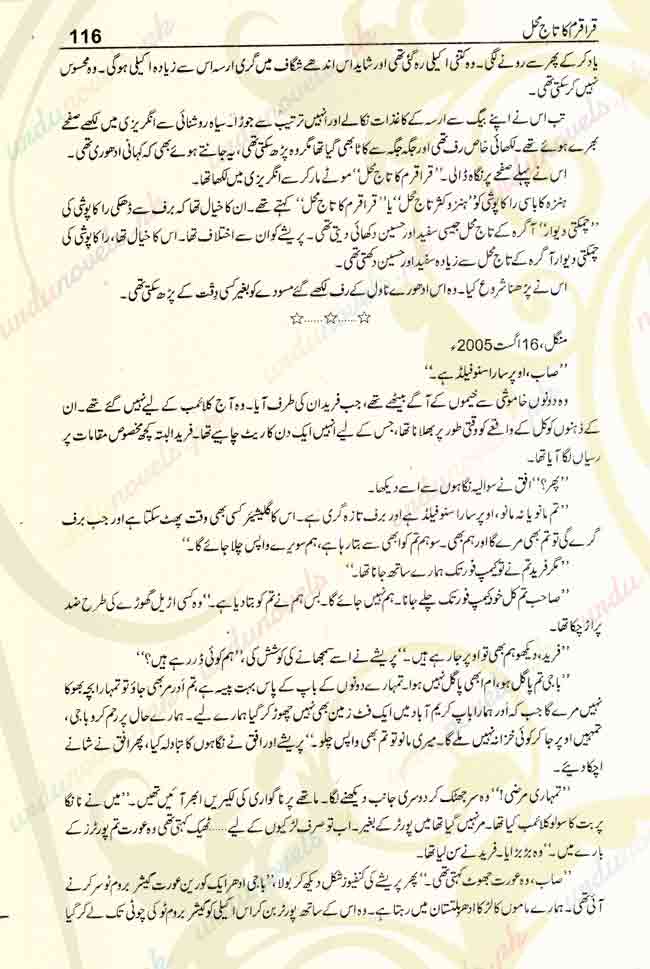 116
قراقرم کا تاج محل
یاد کر کے پھر سے رونے لگی۔ وہ کتنی اکیلی رہ گئی تھی اور شاید اس اندھے شگاف میں گری ارسہ اس سے زیادہ اکیلی ہوگی۔ وہ محسوس
نہیں کر سکتی تھی۔
تب اس نے اپنے بیگ سے ارسہ کے کاغذات نکالے اور انہیں ترتیب سے جوڑا۔ سیاہ روشنائی سے انگریزی میں لکھے صفحے
بھرے ہوئے تھے۔ لکھائی خاصی رف تھی اور جگہ جگہ سے کاٹا بھی گیا تھا مگر وہ پڑھ سکتی تھی، یہ جانتے ہوئے بھی کہ کہانی ادھوری تھی۔
اس نے پہلے صفحے پر نگاہ ڈالی۔ ”قراقرم کا تاج محل“ موٹے مارکر سے انگریزی میں لکھا تھا۔
ہنزہ کا باسی راکاپوشی کو ”ہنزہ وکٹر تاج محل“ یا ”قراقرم کا تاج محل“ کہتے تھے۔ ان کا خیال تھا کہ برف سے ڈھکی راکاپوشی کی
”چمکتی دیوار“ آگرہ کے تاج محل جیسی سفید اور حسین دکھائی دیتی تھی۔ پریشے کو ان سے اختلاف تھا۔ اس کا خیال تھا، راکاپوشی کی
چمکتی دیوار آگرہ کے تاج محل سے زیادہ سفید اور حسین دکھتی تھی۔
اس نے پڑھنا شروع کیا۔ وہ اس ادھورے ناول کے رف لکھے گئے مسودے کو بغیر کسی دقت کے پڑھ سکتی تھی۔
☆......☆......☆
منگل، 16 اگست 2005ء
”صاب، اوپر سارا سنو فیلڈ ہے۔“
وہ دونوں خاموشی سے خیموں کے آگے بیٹھے تھے، جب فرید ان کی طرف آیا۔ وہ آج کلائمب کے لیے نہیں گئے تھے۔ ان
کے ذہنوں کو کل کے واقعے کو وقتی طور پر بھلانا تھا، جس کے لیے انہیں ایک دن کا ریسٹ چاہیے تھا۔ فرید البتہ کچھ مخصوص مقامات پر
رسیاں لگا آیا تھا۔
”پھر؟“ افق نے سوالیہ نگاہوں سے اسے دیکھا۔
”تم مانو یا نہ مانو، اوپر سارا سنو فیلڈ ہے اور برف تازہ گری ہے۔ اس کا گلیشیئر کسی بھی وقت پھٹ سکتا ہے اور جب برف
گرے گی تو تم بھی مرے گا اور ہم بھی۔ سو ہم تم کو ابھی سے بتا رہا ہے، ہم سویرے واپس چلا جائے گا۔“
”مگر فرید تم نے تو کیمپ فور تک ہمارے ساتھ جانا تھا۔“
”صاحب تم کل خود کیمپ فور تک چلے جانا۔ ہم نہیں جائے گا۔ بس ہم نے تم کو بتا دیا ہے۔“ وہ کسی اڑیل گھوڑے کی طرح ضد
پر اڑ چکا تھا۔
”فرید، دیکھو ہم بھی تو اوپر جا رہے ہیں۔“ پریشے نے اسے سمجھانے کی کوشش کی، ”ہم کوئی ڈر رہے ہیں؟“
”باجی تم پاگل ہو، ام ابھی پاگل نہیں ہوا۔ تمہارے دونوں کے باپ کے پاس بہت پیسہ ہے، تم اُدر مر بھی جاؤ تو تمہارا بچہ بھوکا
نہیں مرے گا جب کہ اُدر ہمارا باپ کریم آباد میں ایک فٹ زمین بھی نہیں چھوڑ کر گیا ہمارے لیے۔ ہمارے حال پر رحم کرو باجی،
تمہیں اوپر جا کر کوئی خزانہ نہیں ملے گا۔ میری مانو تو تم بھی واپس چلو۔“ پریشے اور افق نے نگاہوں کا تبادلہ کیا، پھر افق نے شانے
اچکا دیے۔
”تمہاری مرضی!“ وہ سر جھٹک کر دوسری جانب دیکھنے لگا۔ ماتھے پر ناگواری کی لکیریں ابھر آئیں تھیں۔ ”میں نے نانگا
پربت کا سولو کلائمب کیا تھا۔ مر نہیں گیا تھا میں پورٹر کے بغیر۔ اب تو صرف لڑکیوں کے لیے...... ٹھیک کہتی تھی وہ عورت تم پورٹرز کے
بارے میں۔“ وہ بڑبڑایا۔ فرید نے سن لیا تھا۔
”صاب، وہ عورت جھوٹ کہتی تھی۔“ پھر پریشے کی کنفیوز شکل دیکھ کر بولا، ”باجی ادھر ایک کورین عورت گیشر بروم ٹو سر کرنے
آئی تھی۔ ہمارے ماموں کا لڑکا ادھر بلتستان میں رہتا ہے۔ وہ اس کے ساتھ پورٹر بن کر اس اکیلی کو گیشر بروم ٹو کی چوٹی تک لے کر گیا